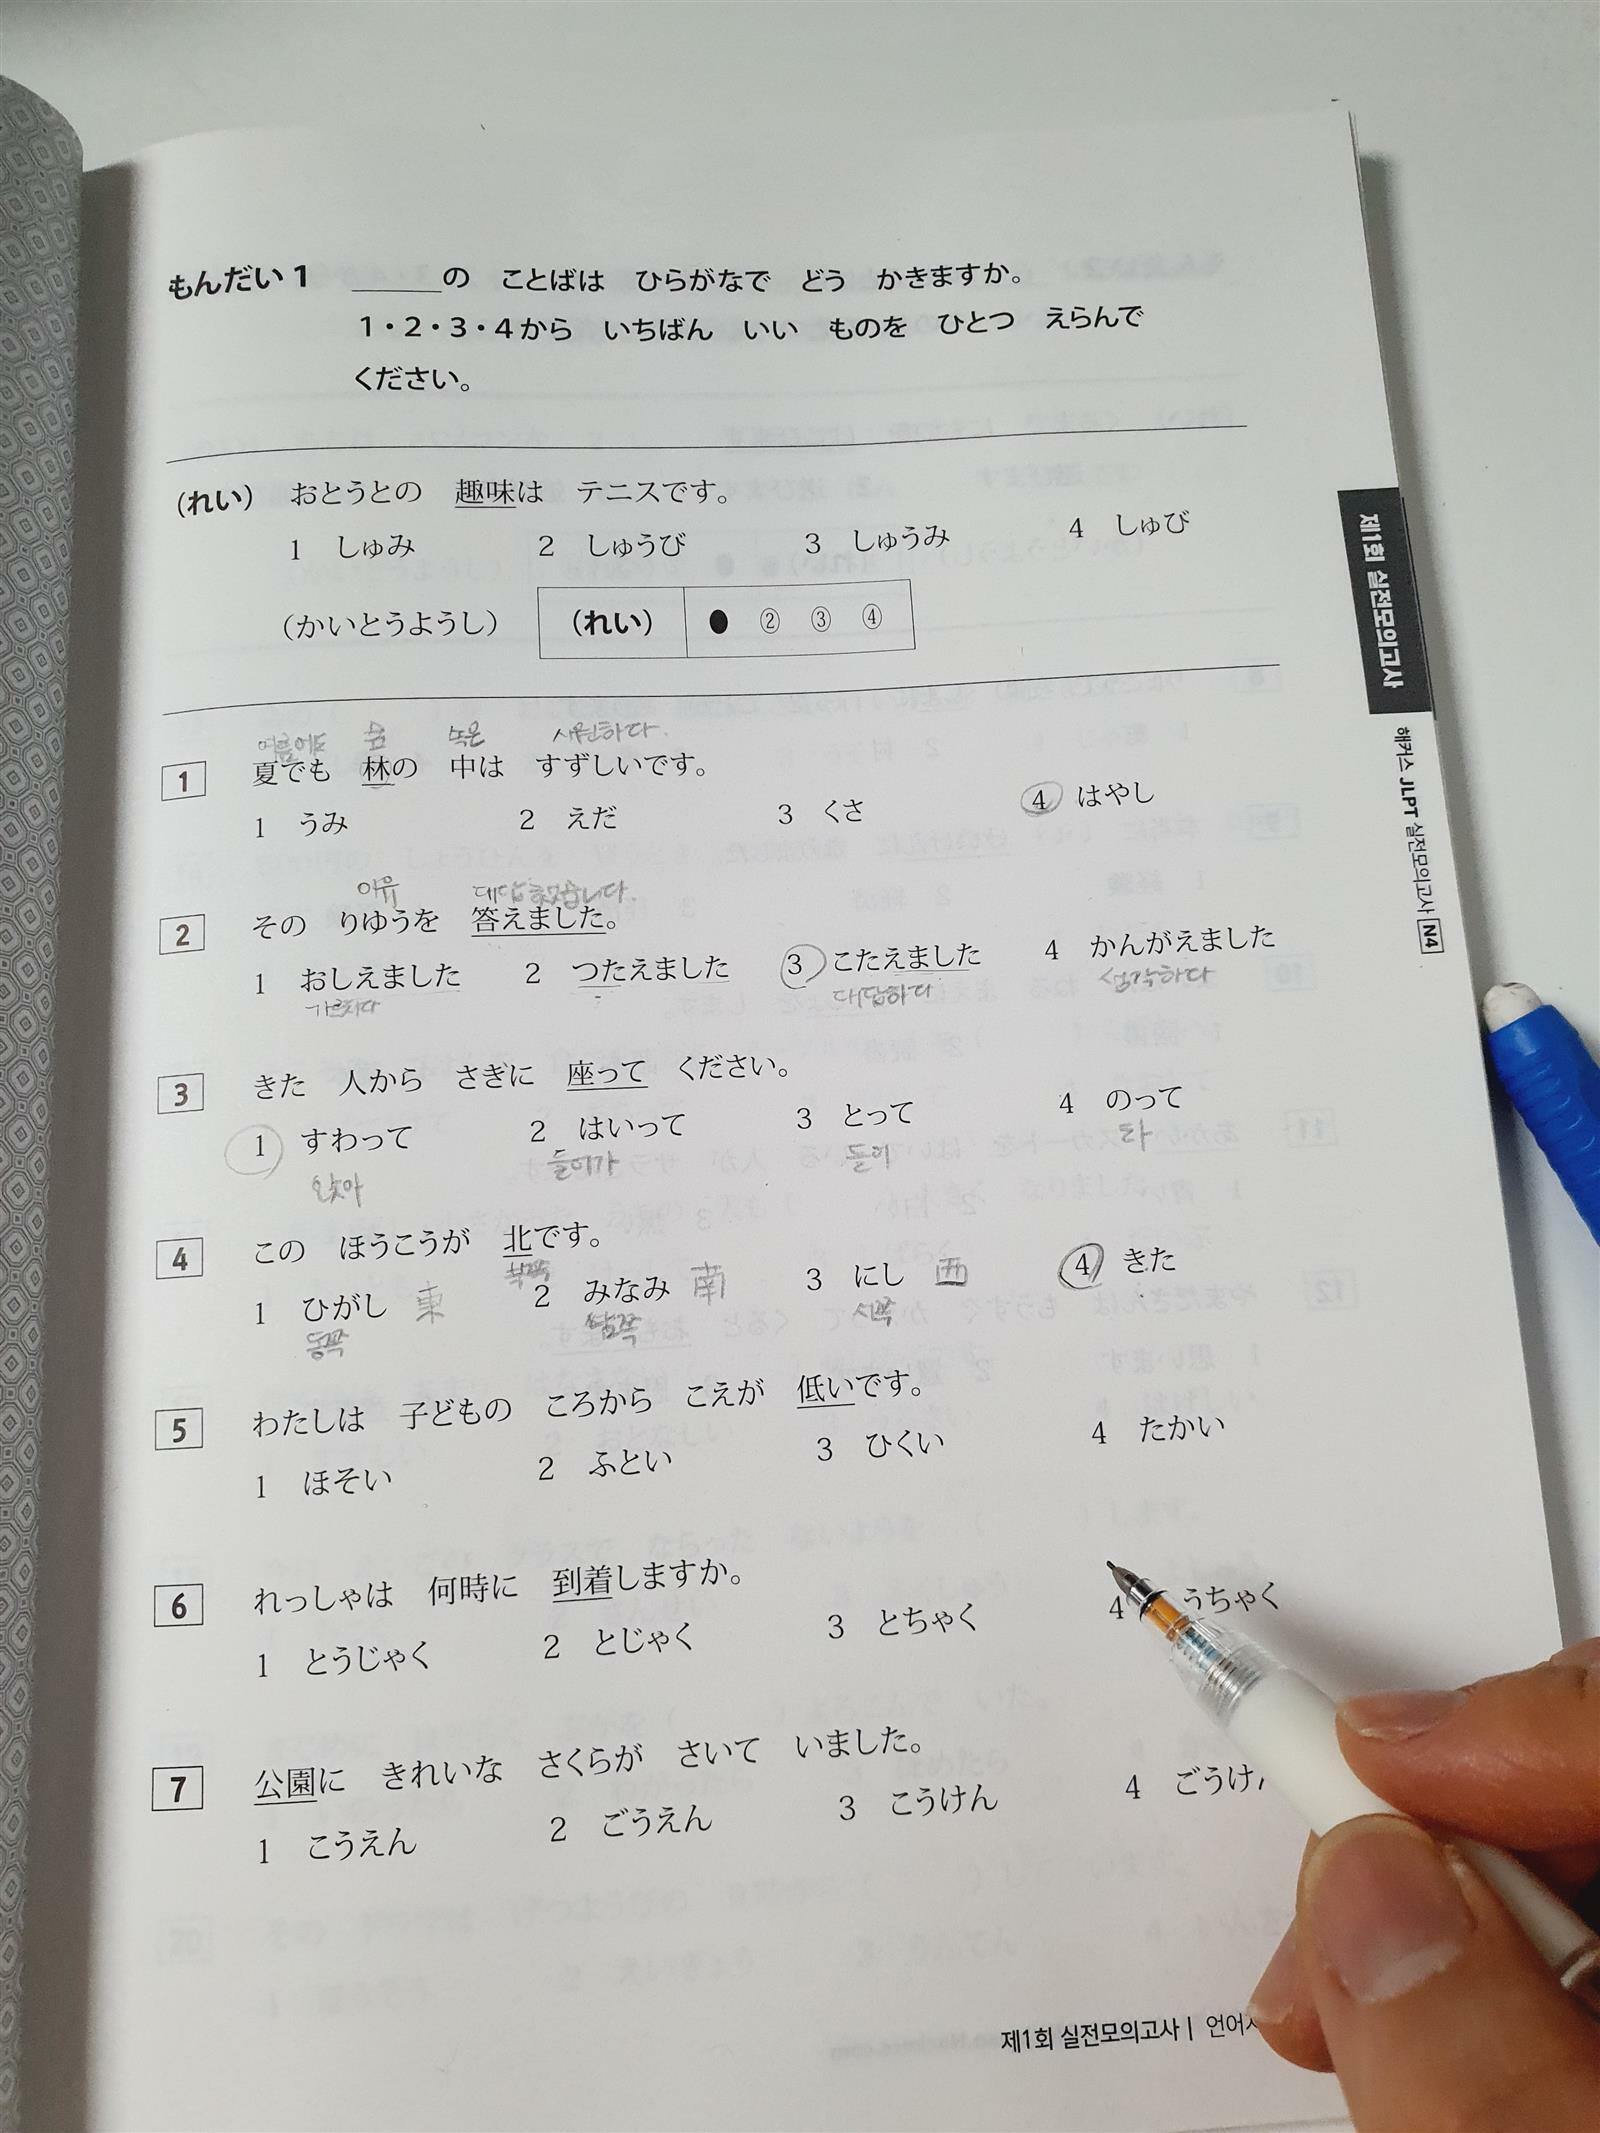 もんだい1 ＿＿＿の ことばは ひらがなで どう かきますか。
1・2・3・4から いちばん いい ものを ひとつ えらんで
ください。
（れい） おとうとの 趣味は テニスです。
1 しゅみ 2 しゅうび 3 しゅうみ 4 しゅび
（かいとうようし） （れい） ● ② ③ ④
여름에도 숲 속은 시원하다.
1 夏でも 林の 中は すずしいです。
1 うみ 2 えだ 3 くさ 4 はやし
이유 대답했습니다.
2 その りゆうを 答えました。
1 おしえました 2 つたえました 3 こたえました 4 かんがえました
가르치다 대답하다 생각하다
3 きた 人から さぎに 座って ください。
1 すわって 2 はいって 3 とって 4 のって
앉아 들어가 타
4 この ほうこうが 北です。
북쪽
1 ひがし 東 2 みなみ 南 3 にし 西 4 きた
동쪽 남쪽 서쪽
5 わたしは 子どもの ころから こえが 低いです。
1 ほそい 2 ふとい 3 ひくい 4 たかい
6 れっしゃは 何時に 到着しますか。
1 とうじゃく 2 とじゃく 3 とちゃく 4 うちゃく
7 公園に きれいな さくらが さいて いました。
1 こうえん 2 ごうえん 3 こうけん 4 ごうけ
제1회 실전모의고사
해커스 JLPT 실전모의고사 N4
제1회 실전모의고사 | 언어